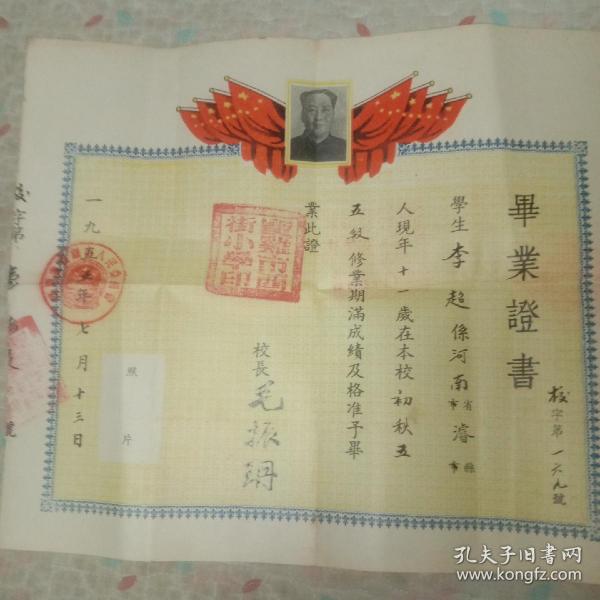 畢業證書
校字第一六九號
學生李超係河南省濬縣
市 市
人現年十一歲在本校初秋五
五级修業期滿成績及格准予畢
業此證
校長
一九五五年七月十三日
照片
街小學印
校字第
號
孔夫子旧书网
www.kongfz.com